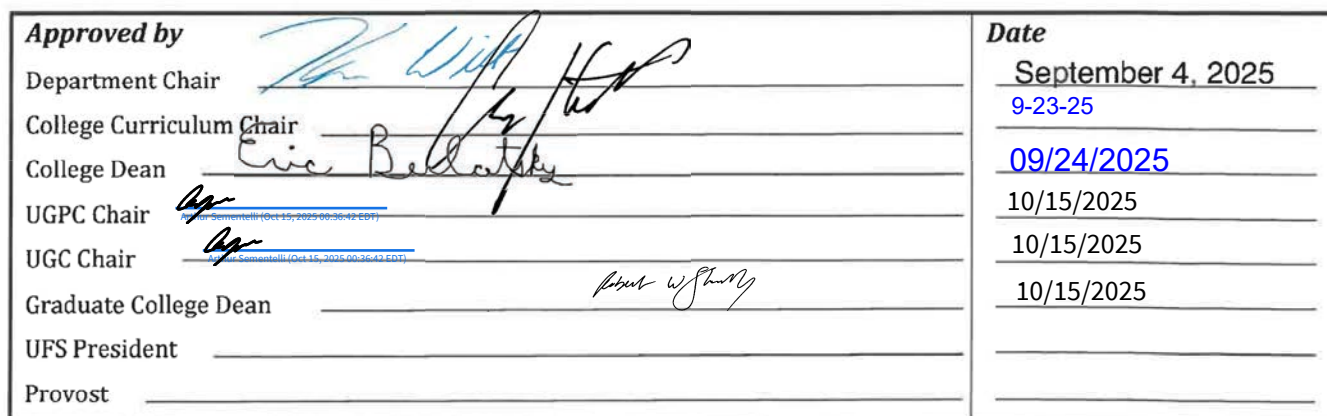 Approved by Date
Department Chair September 4, 2025
College Curriculum Chair 9-23-25
College Dean Eric 09/24/2025
UGPC Chair 10/15/2025
Arthur Sementelli (Oct 15, 2025 00:36:42 EDT)
UGC Chair 10/15/2025
Arthur Sementelli (Oct 15, 2025 00:36:42 EDT)
Graduate College Dean Robert W 10/15/2025
UFS President
Provost